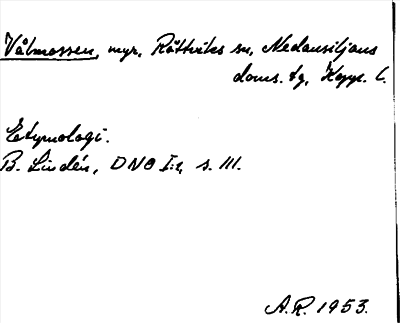 Vålmossen, myr, Rättviks sn, Nedansiljans
doms. tg, Kopp. l.
Etymologi.
B. Lindén, DNO I:1, s. 111.
A.R. 1953.